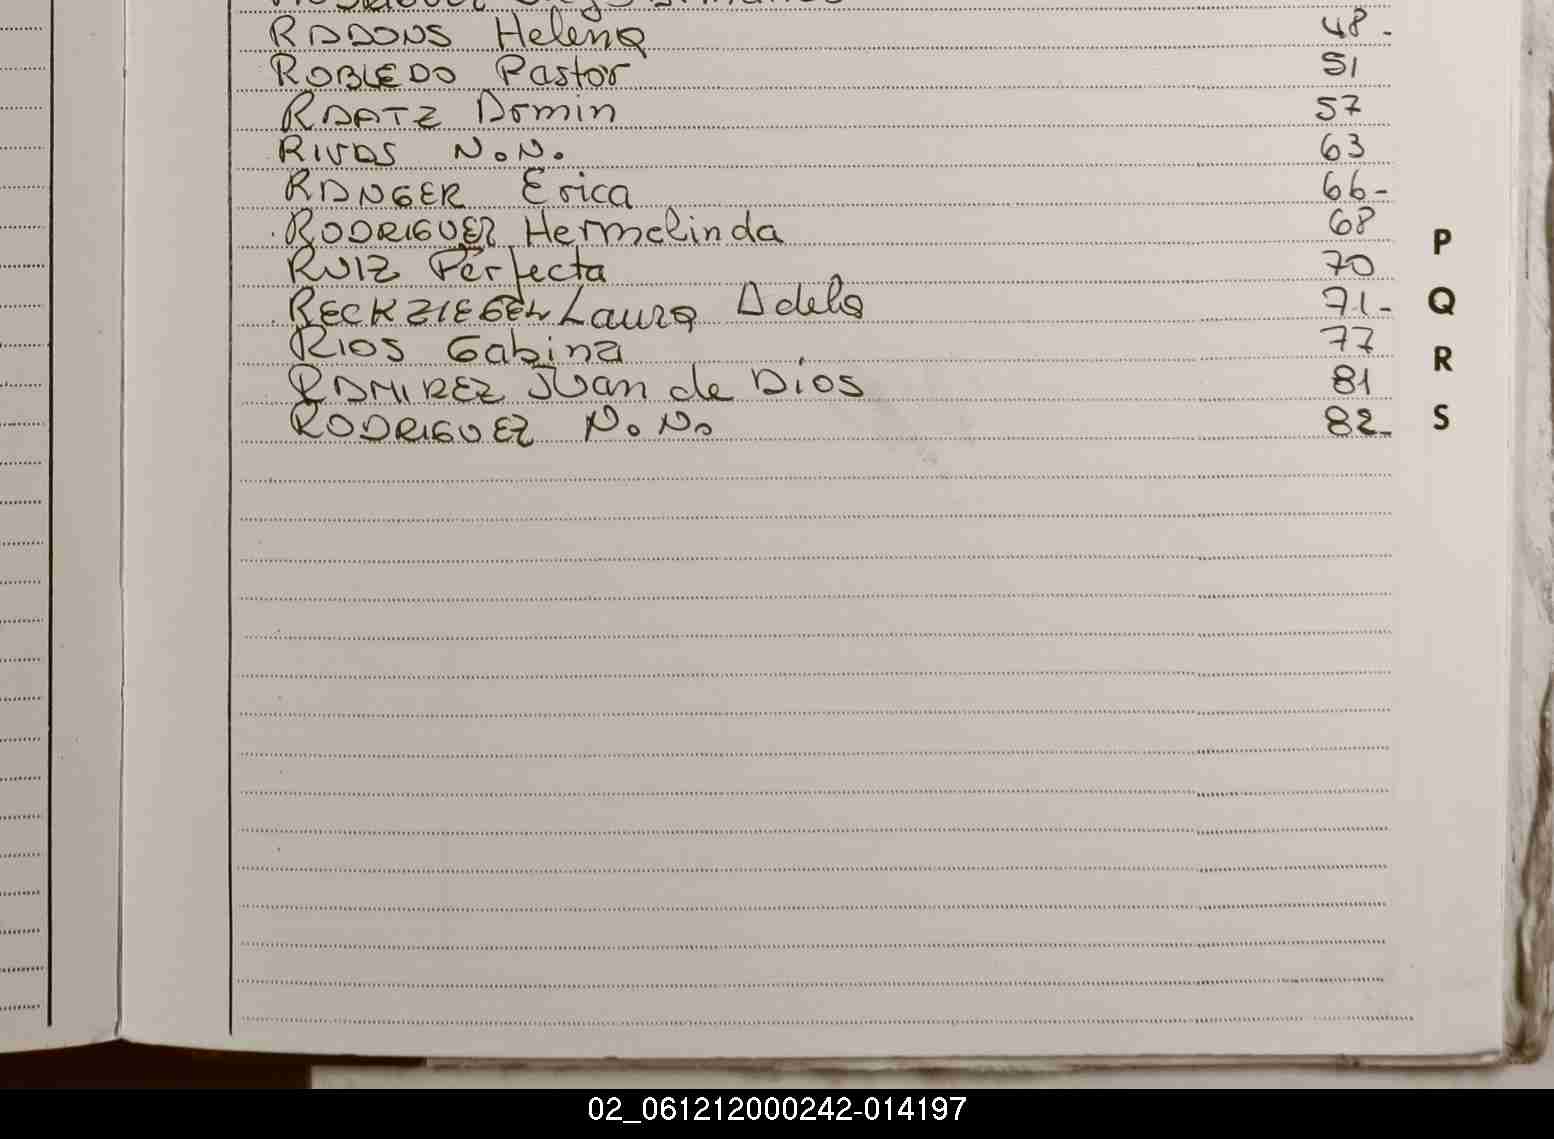 RADONS Helena 48-
ROBLEDO Pastor 51
RAATZ Armin 57
RIVAS N.N. 63
RANGER Erica 66-
RODRIGUEZ Hermelinda 68
RUIZ Perfecta 70
RECKZIEGEL Laura Adela 71-
RIOS Gabina 77
RAMIREZ Juan de Dios 81
RODRIGUEZ N.N. 82-
P
Q
R
S
02_061212000242-014197